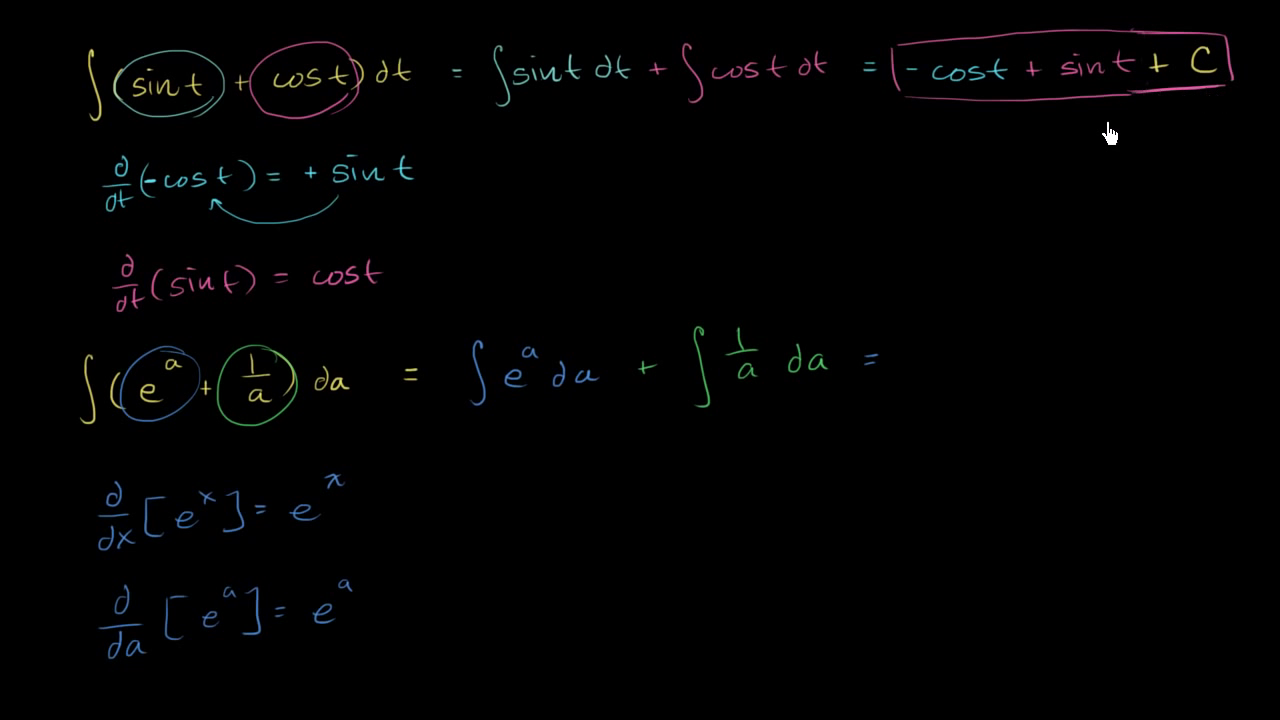 ∫(sin t + cos t) dt = ∫sin t dt + ∫cos t dt = - cos t + sin t + C
d/dt (-cos t) = + sin t
d/dt (sin t) = cos t
∫(e^a + 1/a) da = ∫e^a da + ∫1/a da =
d/dx [e^x] = e^x
d/da [e^a] = e^a